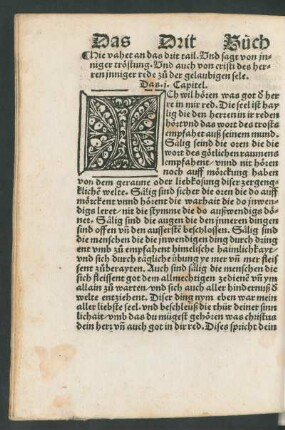 Das Drit Bůch
Hie vahet an das drit tail. Vnd sagt von jn⸗
niger tröstung. Vnd auch von cristi des her⸗
ren jnniger rede zů der gelaubigen sele.
Das .j. Capitel.
ICh wil hören was got ð her
re in mir red. Die seel ist hay
lig die den herren in ir reden
hört vnd das wort des trosts
empfahet auß seinem mund.
Sälig seind die oren die die
wort des götlichen raumens
empfahent / vnnd nit hören
noch auff mörckung haben
von dem geraune oder liebkosung diser zergeng⸗
klichē welte. Sälig sind sicher die oren die do auff
mörckent vnnd hörent die warhait die do jnwen⸗
digs leret / nit die stymme die do außwendigs dö⸗
net. Sälig sind die augen die den jnneren dingen
sind offen vñ den ausserstē beschlossen. Sälig sind
die menschen die die jnwendigen ding durch tring
ent vnd zů empfahent himelische haimlichkayt /
vnd sich durch tägliche übung ye mer vñ mer fleis⸗
sent zůberayten. Auch sind sälig die menschen die
sich fleissent got dem allmechtigen zedienē vñ ym
allain zů warten / vnd sich auch aller hindernuß ð
welte entziehent. Diser ding nym eben war mein
aller liebste seel / vnd beschleüß die thür deiner sinn
lichait / vmb das du mügest gehören was christus
dein herꝛ vñ auch got in dir red. Dises spricht dein